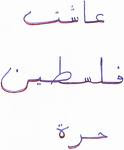 عاشت
فلسطين
حرة